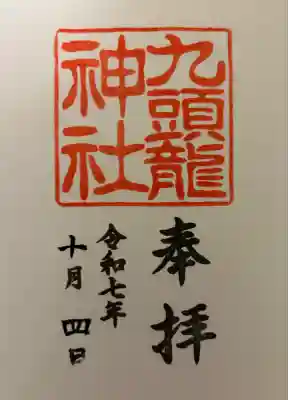 九頭龍
神社
奉拝
令和七年
十月四日